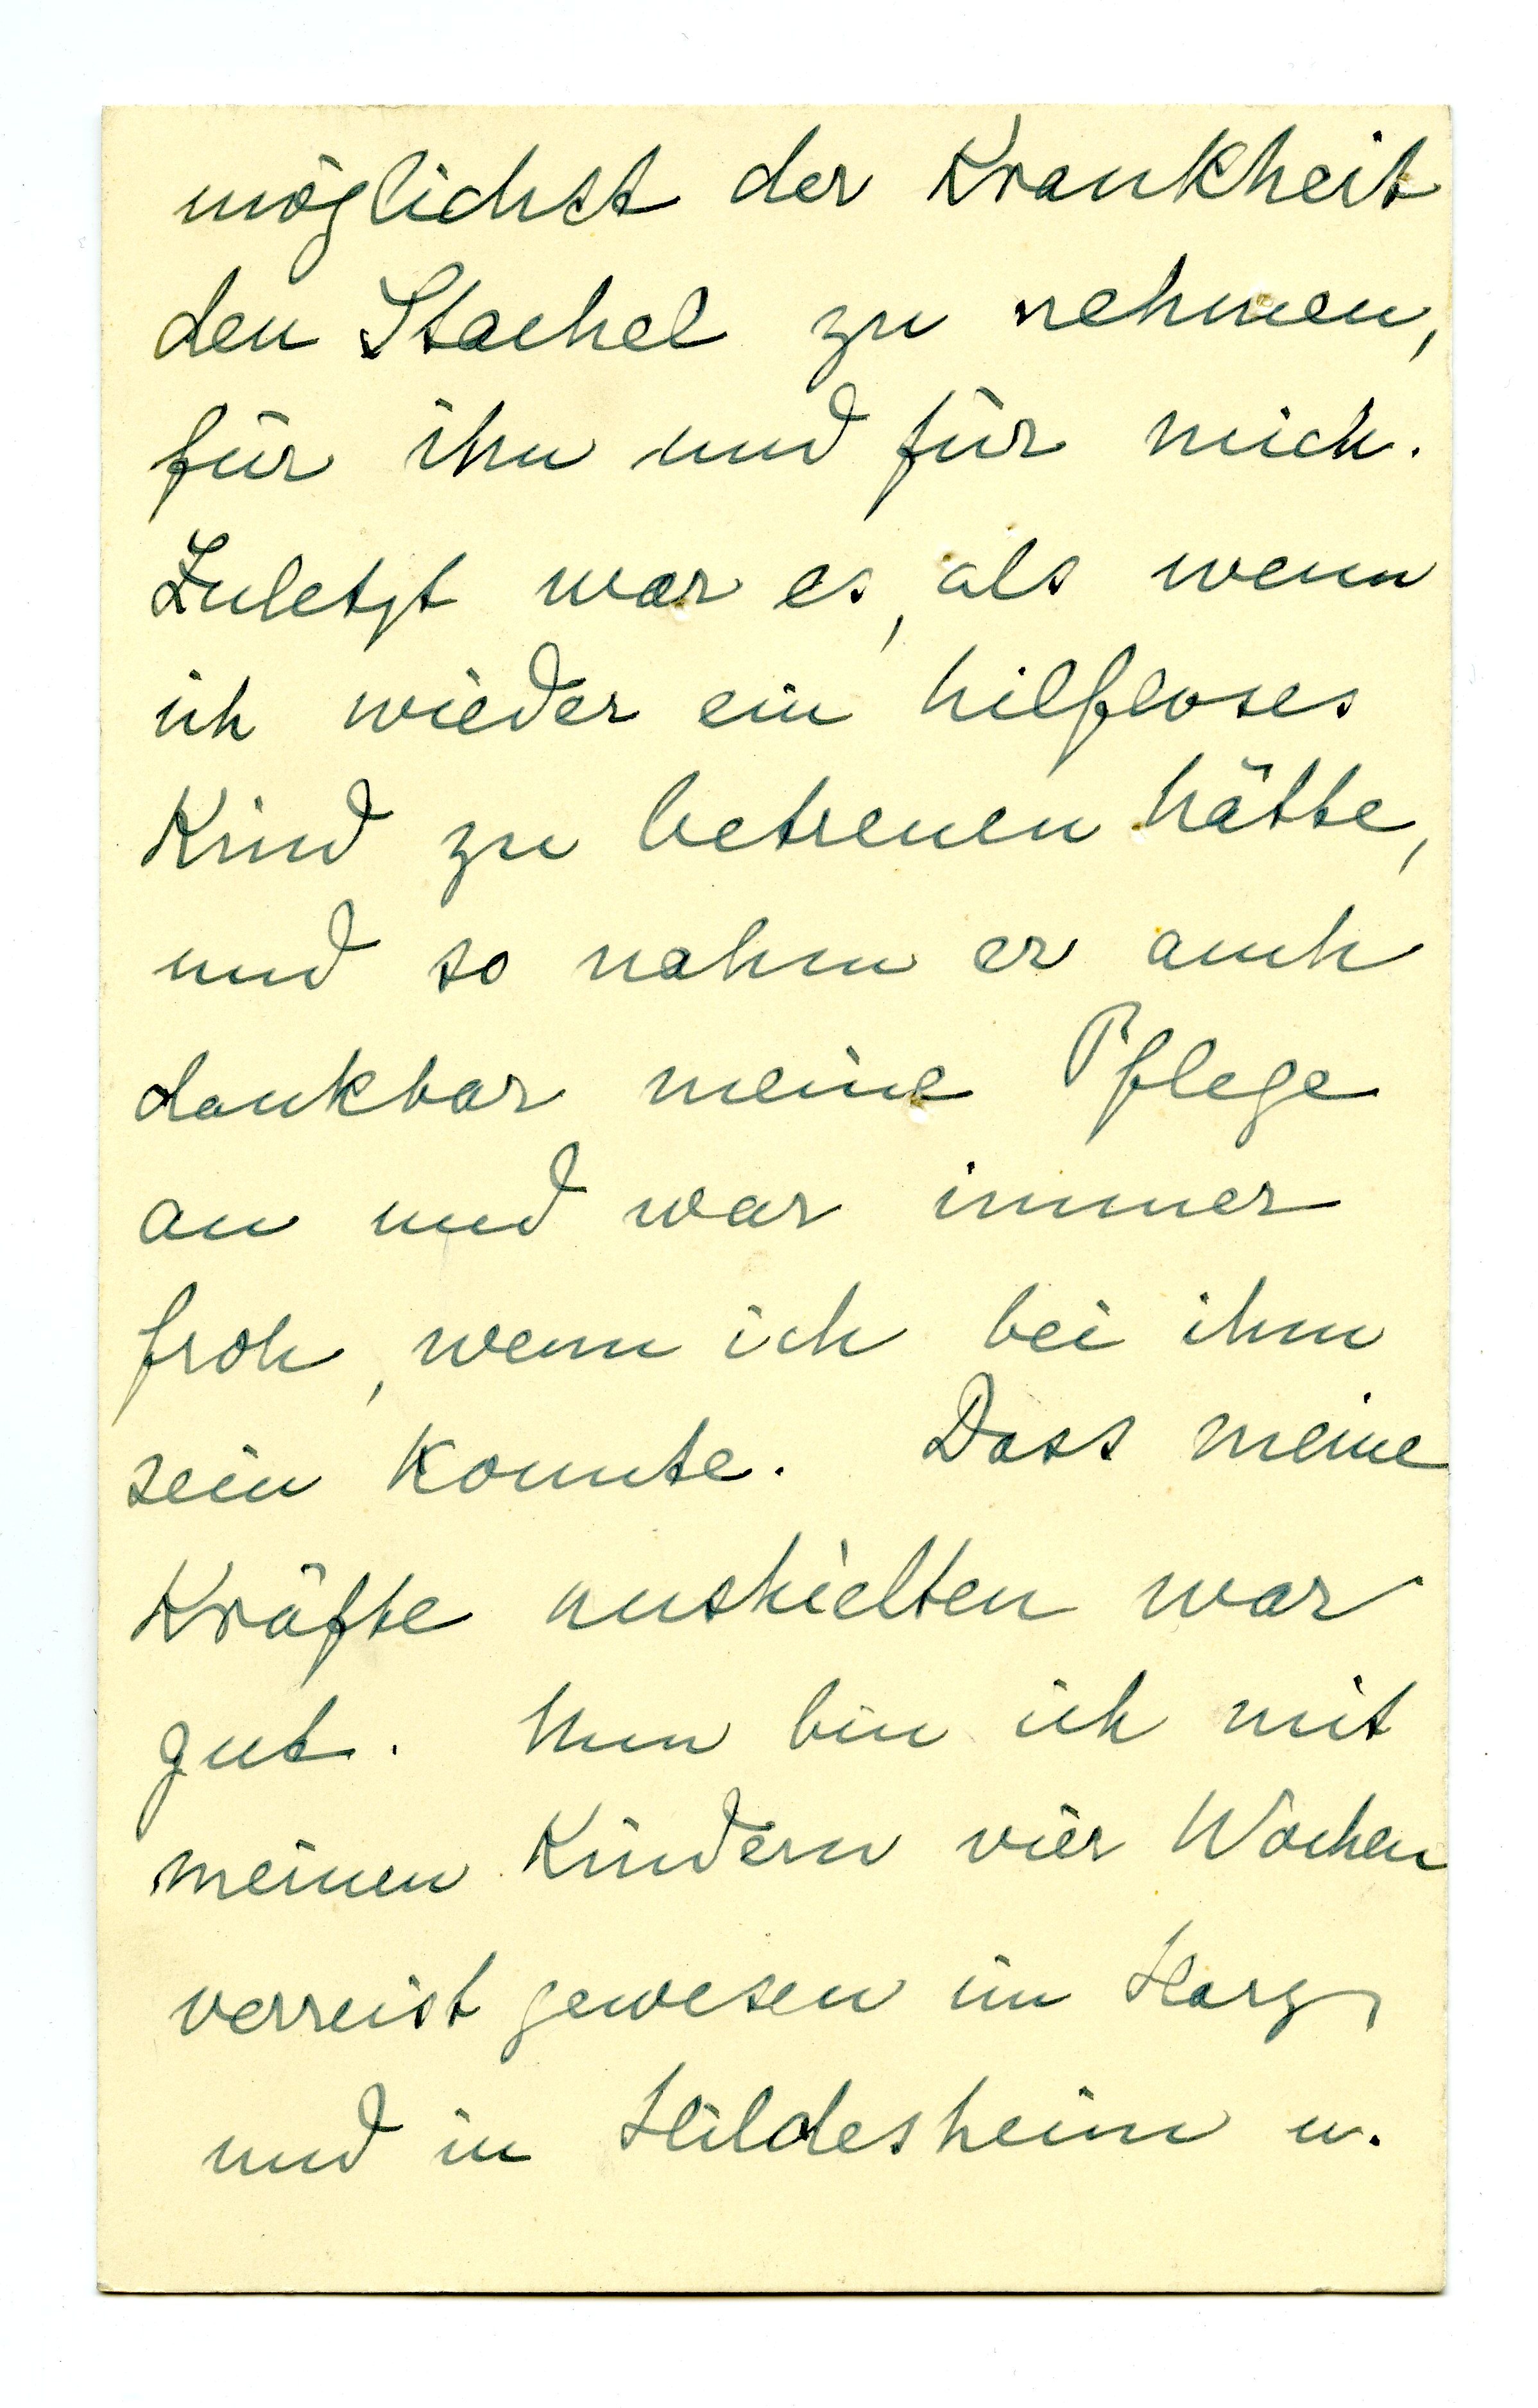 möglichst der Krankheit
den Stachel zu nehmen,
für ihn und für mich.
Zuletzt war es, als wenn
ich wieder ein hilfloses
Kind zu betreuen hätte,
und so nahm er auch
dankbar meine Pflege
an und war immer
froh, wenn ich bei ihm
sein konnte. Dass meine
Kräfte aushielten war
gut. Nun bin ich mit
meinen Kindern vier Wochen
verreist gewesen im Harz
und in Hildesheim u.